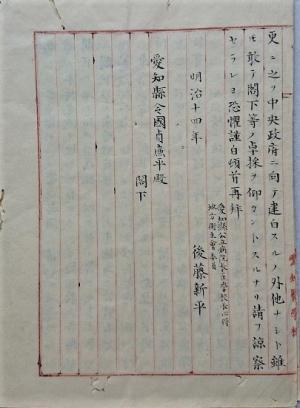 更ニ之ヲ中央政府ニ向テ建白スルノ外他ナシト雖
モ敢テ閣下等ノ卓採ヲ仰カントスルナリ請フ諒察
セラレヨ恐懼謹白頓首再拜
明治十四年
愛知縣公立病院長兼醫學校長心得
地方衛生會委員
後藤新平
愛知縣令國貞廉平殿
閣下